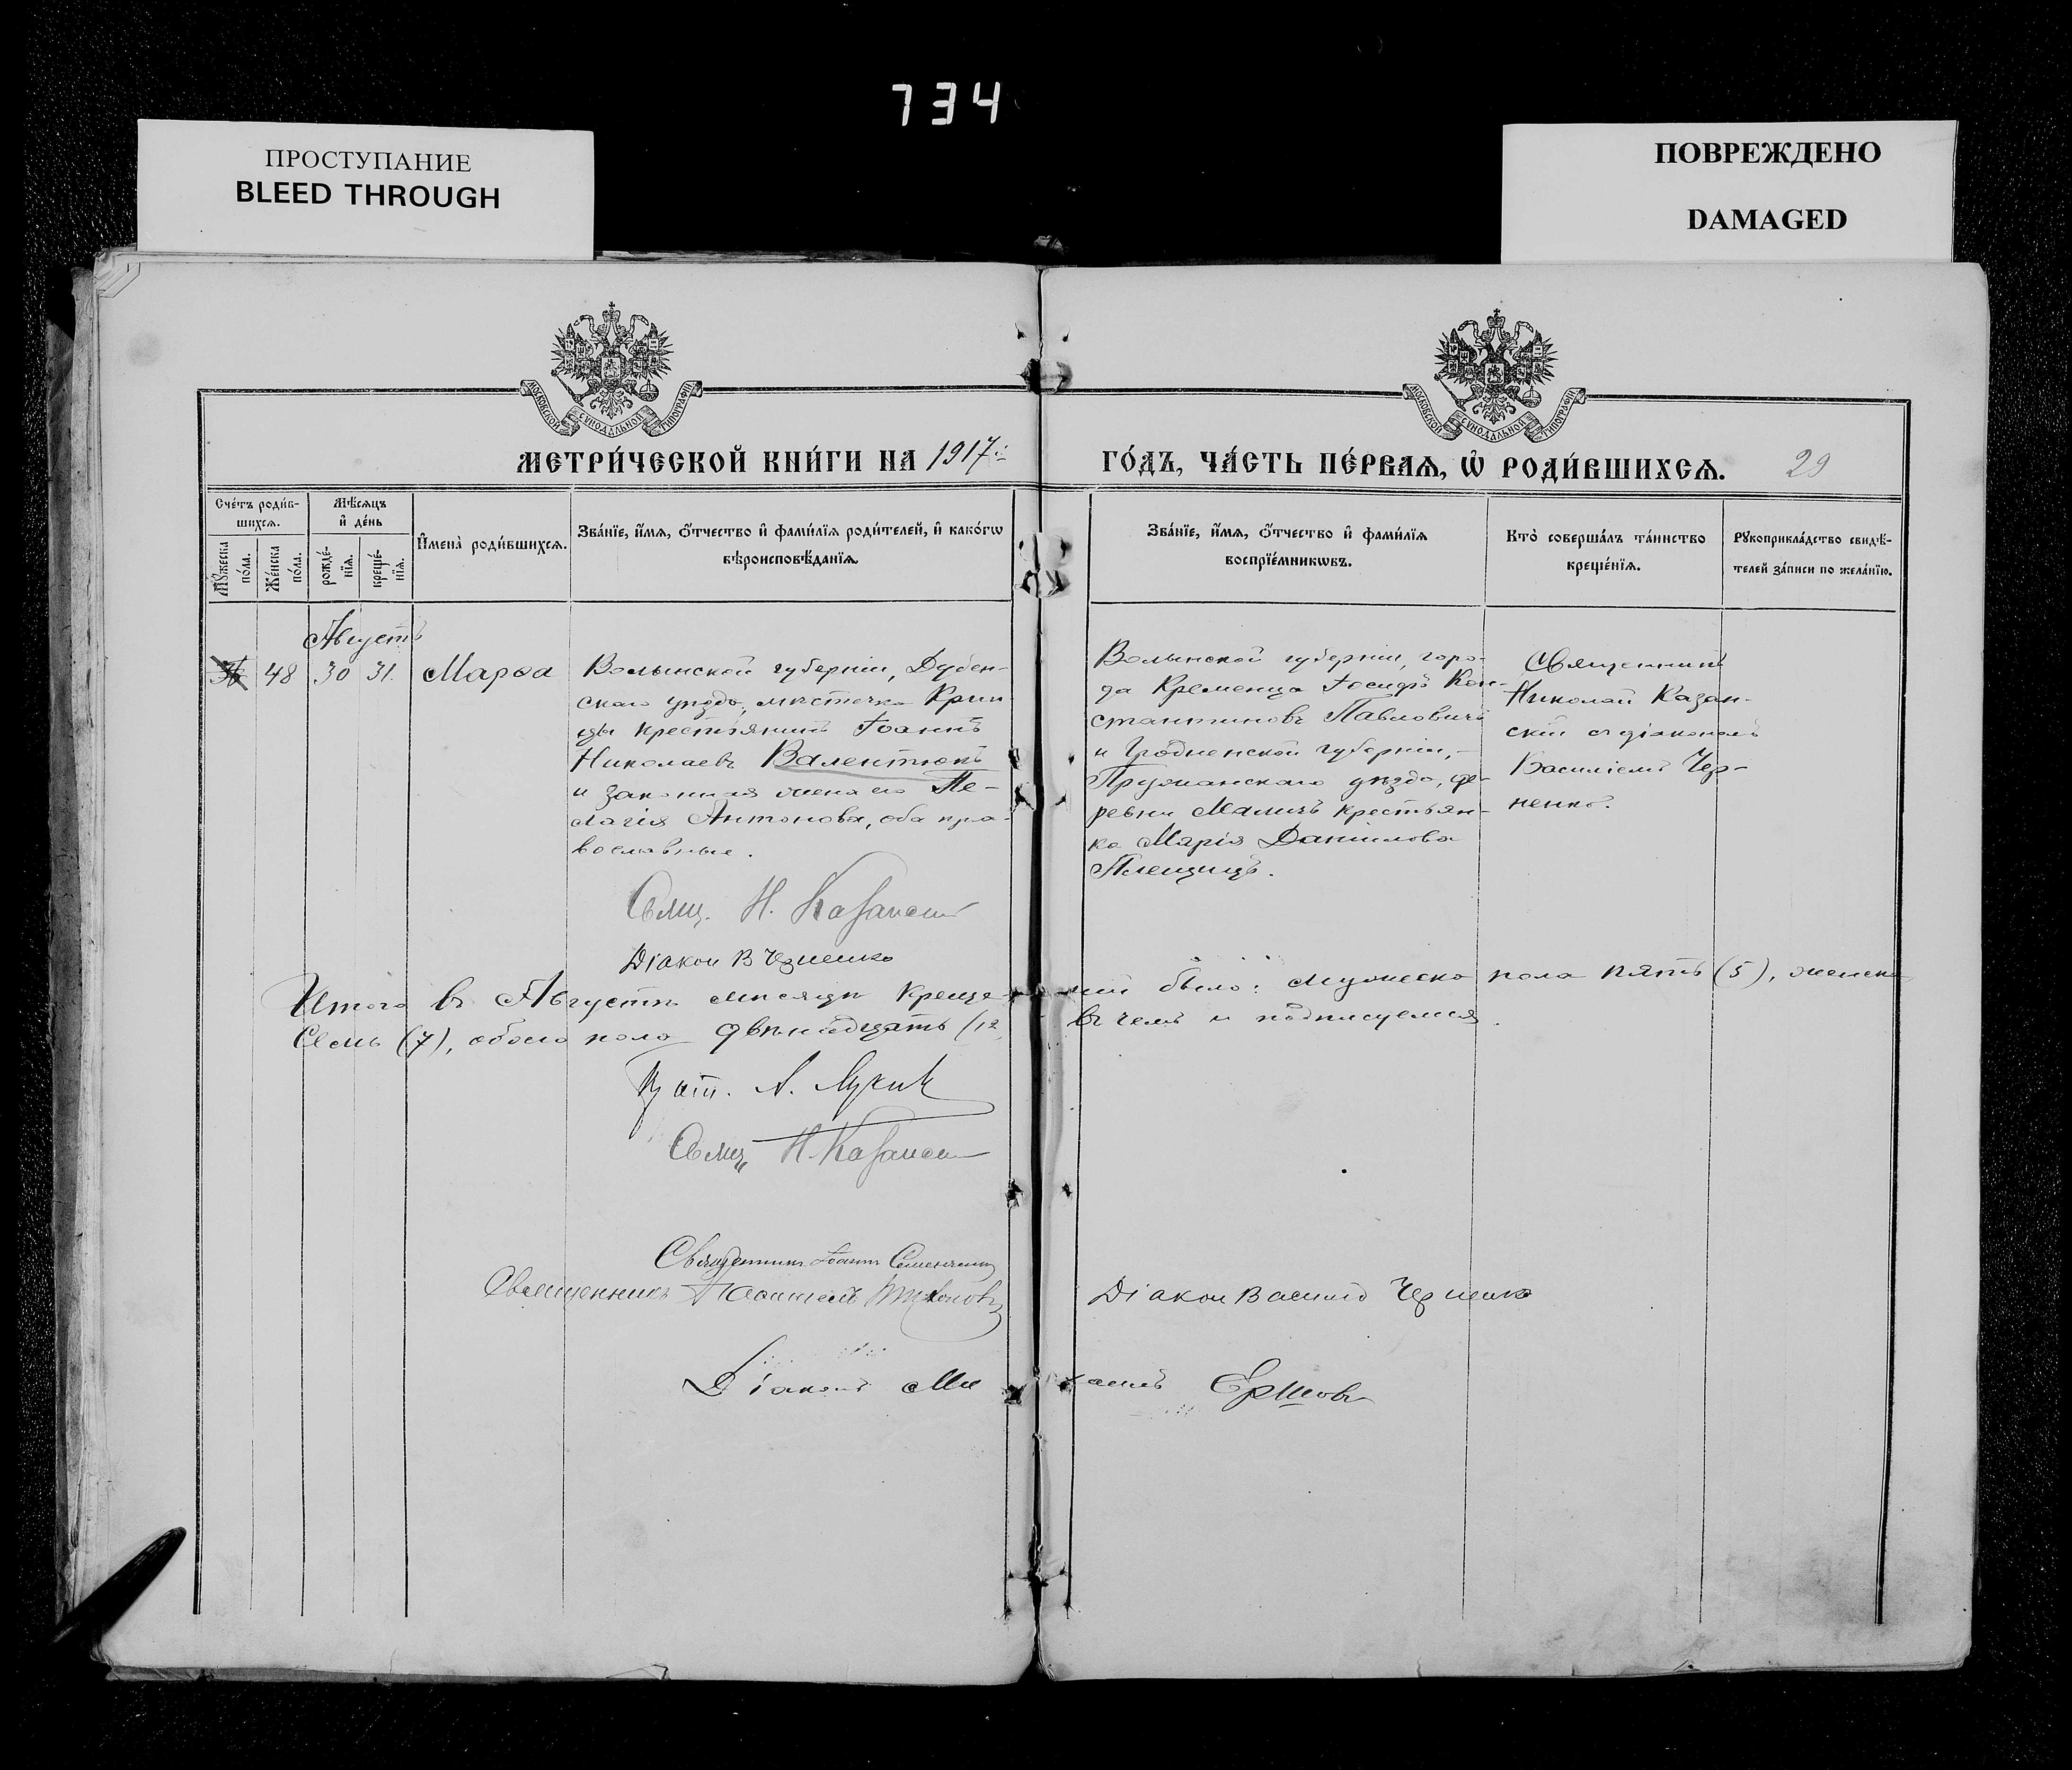 734
ПРОСТУПАНИЕ
BLEED THROUGH
ПОВРЕЖДЕНО
DAMAGED
МОСКОВСКОЙ СѴНОДАЛЬНОЙ ТИПОГРАФІИ
МОСКОВСКОЙ СѴНОДАЛЬНОЙ ТИПОГРАФІИ
МЕТРИ́ЧЕСКОЙ КНИ́ГИ НА 1917й
ГО́ДЪ, ЧА́СТЬ ПЕ́РВАѦ, Ѡ҆ РОДИ́ВШИХСѦ.
29
Сче́тъ роди́в-
шихсѧ.
Мѣ́сѧцъ
и҆ де́нь
Мꙋ́жеска по́ла.
Же́нска по́ла.
рожде́-
нїѧ.
креще́-
нїѧ.
И҆мена̀ роди́вшихсѧ.
Зва́нїе, и҆́мѧ, ѻ҆́тчество и҆ фами́лїѧ роди́телей, и҆ како́гѡ
вѣроисповѣ́данїѧ.
Зва́нїе, и҆́мѧ, ѻ҆́тчество и҆ фами́лїѧ
воспрїе́мникѡвъ.
Кто̀ соверша́лъ та́инство
креще́нїѧ.
Рꙋкоприкла́дство свидѣ́-
телей за́писи по жела́нїю.
Августъ
36 48 30 31. Марѳа
Волынской губерніи, Дубен-
скаго уѣзда, мѣстечка Крин-
цы крестьянинъ Іоаннъ
Николаевъ Валентюкъ
и законная жена его Пе-
лагія Антонова, оба пра-
вославные.
Волынской губерніи, горо-
да Кременца Іосифъ Кон-
стантиновъ Павловичъ
и Гродненской губерніи,
Пружанскаго уѣзда, де-
ревни Маличъ крестьян-
ка Марія Даниилова
Плещицъ.
Священникъ
Николай Казан-
скій съ діакономъ
Василіемъ Чер-
ненко.
Свящ. Н. Казанскій
Діакон В Черненко
Итого въ Августѣ мѣсяцѣ креще-ній было: мужеска пола пять (5), женска
Семь (7), обоего пола двѣнадцать (12 въ чемъ и подписуемся.
А.
Свящ. Н. Казанскій
Священникъ Іоаннъ
Священникъ Тихоновъ
Діакон Василій Черненко
Діаконъ Ми хаилъ Ершовъ